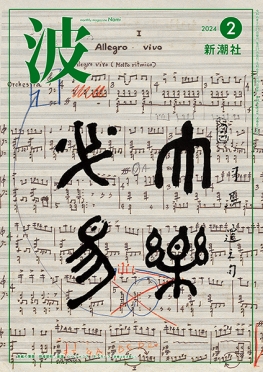 波
monthly magazine Nami
2024
2
新潮社
I
Allegro vivo
Allegro vivo (Molto ritmico)
Orchestra
大樂
必易
司馬遷之句